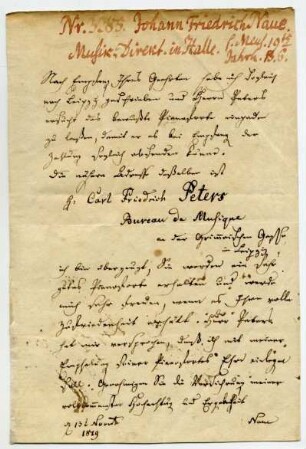 Nr. Johann Friedrich Naue.
Musik-Direkt. in Halle.
Nach Empfang Ihres Geehrten habe ich sogleich
nach Leipzig geschrieben und Herrn Peters
ersucht das bewußte Pianoforte einpacken
zu lassen, damit er es bei Empfang der
Zahlung sogleich absenden könne.
Die nähere Adresse desselben ist
H. Carl Friedrich Peters
Bureau de Musique
in der Grimmaischen Gasse
in Leipzig
ich bin überzeugt, Sie werden ein sehr
gutes Pianoforte erhalten und werde
mich sehr freuen, wenn es Ihren
Zufriedenheit erhält. Herr Peters
hat mir versprochen, daß ich mit meiner
Empfehlung seiner Pianoforte's Ehre einlegen
soll. Genehmigen Sie die Versicherung meiner
vollkommensten Hochachtung und Ergebenheit
Naue
1819